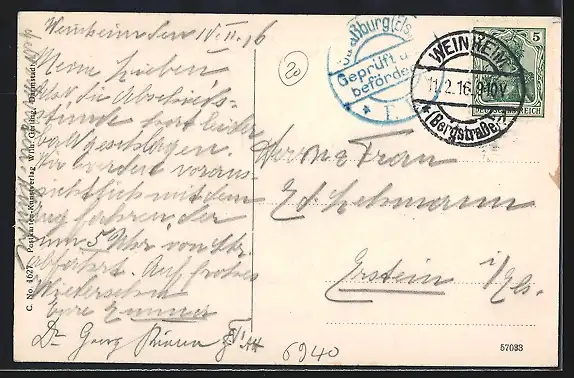 Weinheim den 10. II. 16
Meine Lieben
Also die Abschieds-
stunde hat leider
bald geschlagen.
Wir werden voraus-
sichtlich mit dem
Zug fahren, der
um 5 Uhr von Str.
abfährt. Auf frohes
Wiedersehn
Eure Emma
Dr. Georg
C. No. 1627 Postkarten-Kunstverlag Wilh. Gerling, Darmstadt
20
Straßburg (Els.
Geprüft u.
befördern
* F. *
WEINHEIM
11.2.16.9-10V.
* (Bergstraße) *
5
DEUTSCHES REICH
Herrn & Frau
Ed Lehmann
Erstein i/Els.
6940
57033